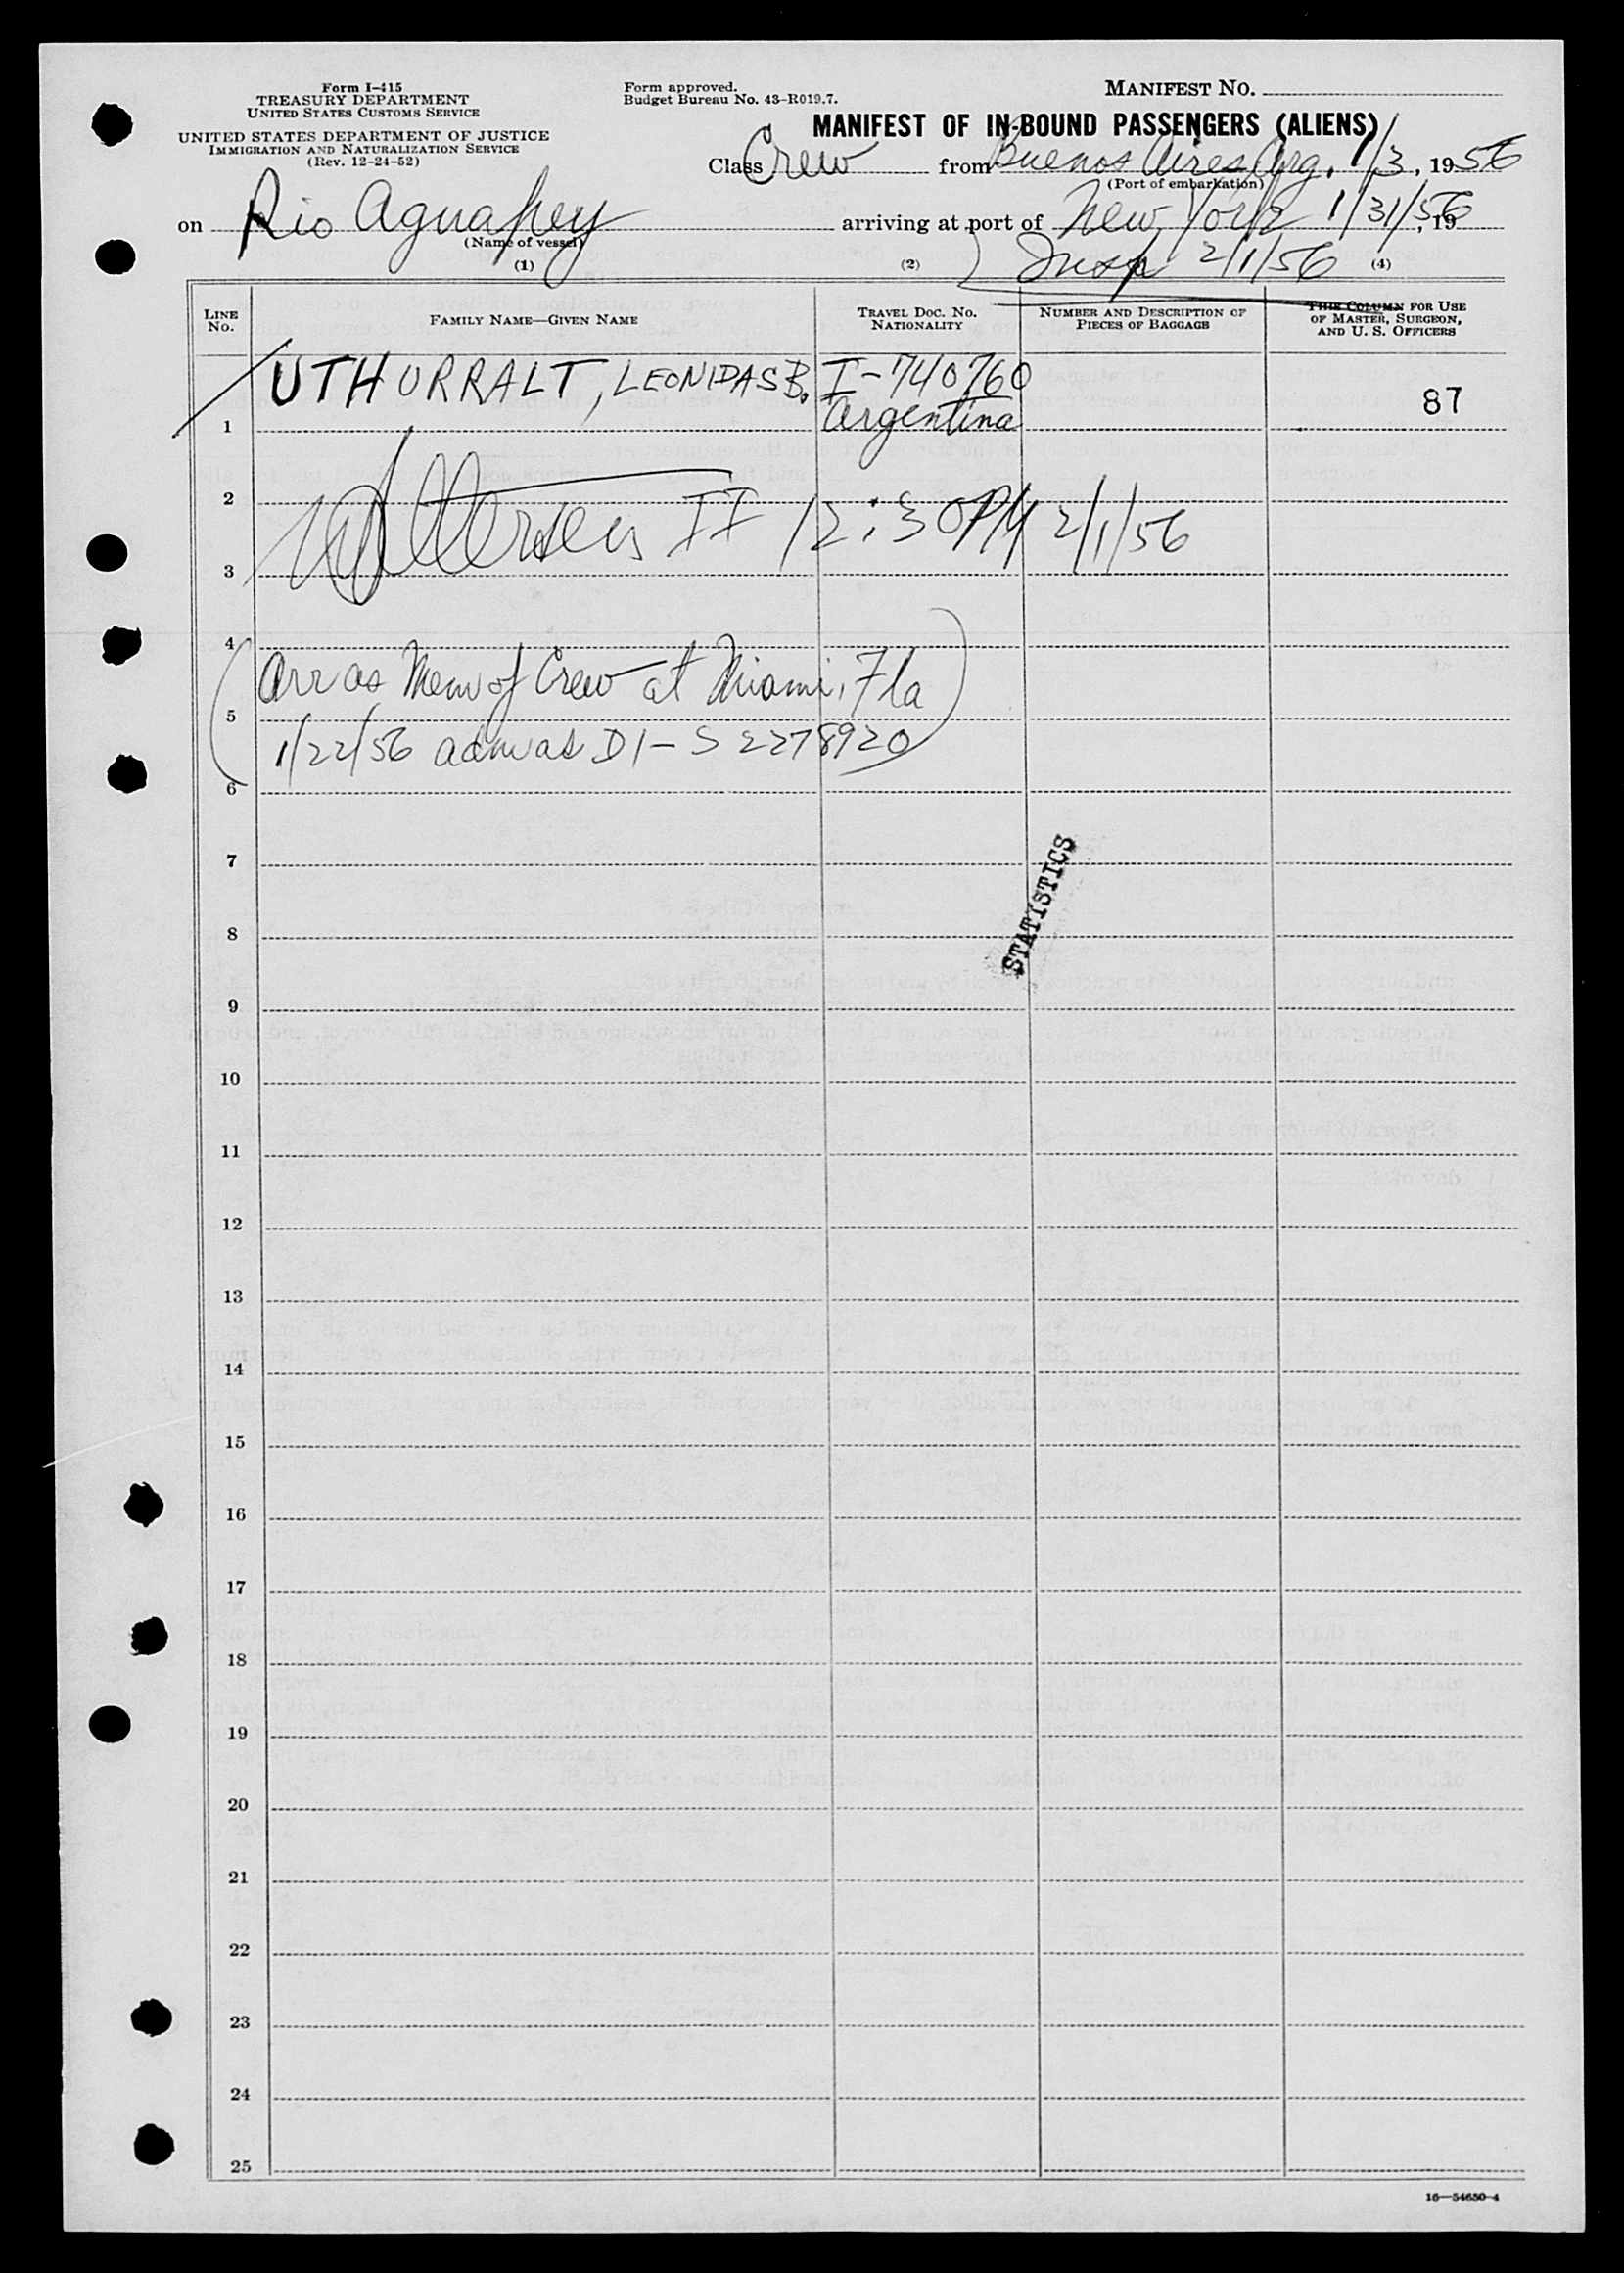 Form I-415
TREASURY DEPARTMENT
UNITED STATES CUSTOMS SERVICE
UNITED STATES DEPARTMENT OF JUSTICE
IMMIGRATION AND NATURALIZATION SERVICE
(Rev. 12-24-52)
Form approved.
Budget Bureau No. 43-R019.7.
MANIFEST No.
MANIFEST OF IN-BOUND PASSENGERS (ALIENS)
Class Crew from Buenos Aires Arg. 1/3, 1956
(Port of embarkation)
on Rio Aguapey arriving at port of New York 1/31/56, 19
(Name of vessel)
Insp 2/1/56
(1) (2) (4)
LINE No.
FAMILY NAME—GIVEN NAME
TRAVEL DOC. No. NATIONALITY
NUMBER AND DESCRIPTION OF PIECES OF BAGGAGE
THIS COLUMN FOR USE OF MASTER, SURGEON, AND U. S. OFFICERS
1 UTHURRALT, LEONIDAS B. I-740760 87
Argentina
2
II 12:30PM 2/1/56
3
4
Arr as Mem of Crew at Miami, Fla
5
1/22/56 adm as D1-S 2278920
6
7
STATISTICS
8
9
10
11
12
13
14
15
16
17
18
19
20
21
22
23
24
25
16—54650-4